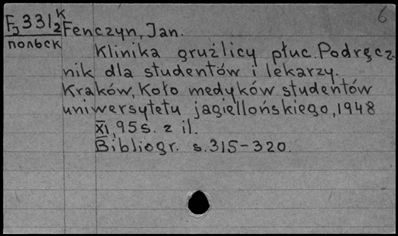 6
F₅331₂K Fenczyn, Jan.
польск Klinika gruźlicy płuc. Podręcz-
nik dla studentów i lekarzy.
Kraków, Koło medyków studentów
uniwersytetu jagiellońskiego, 1948
XI, 95 s. z il.
Bibliogr. s. 315-320.